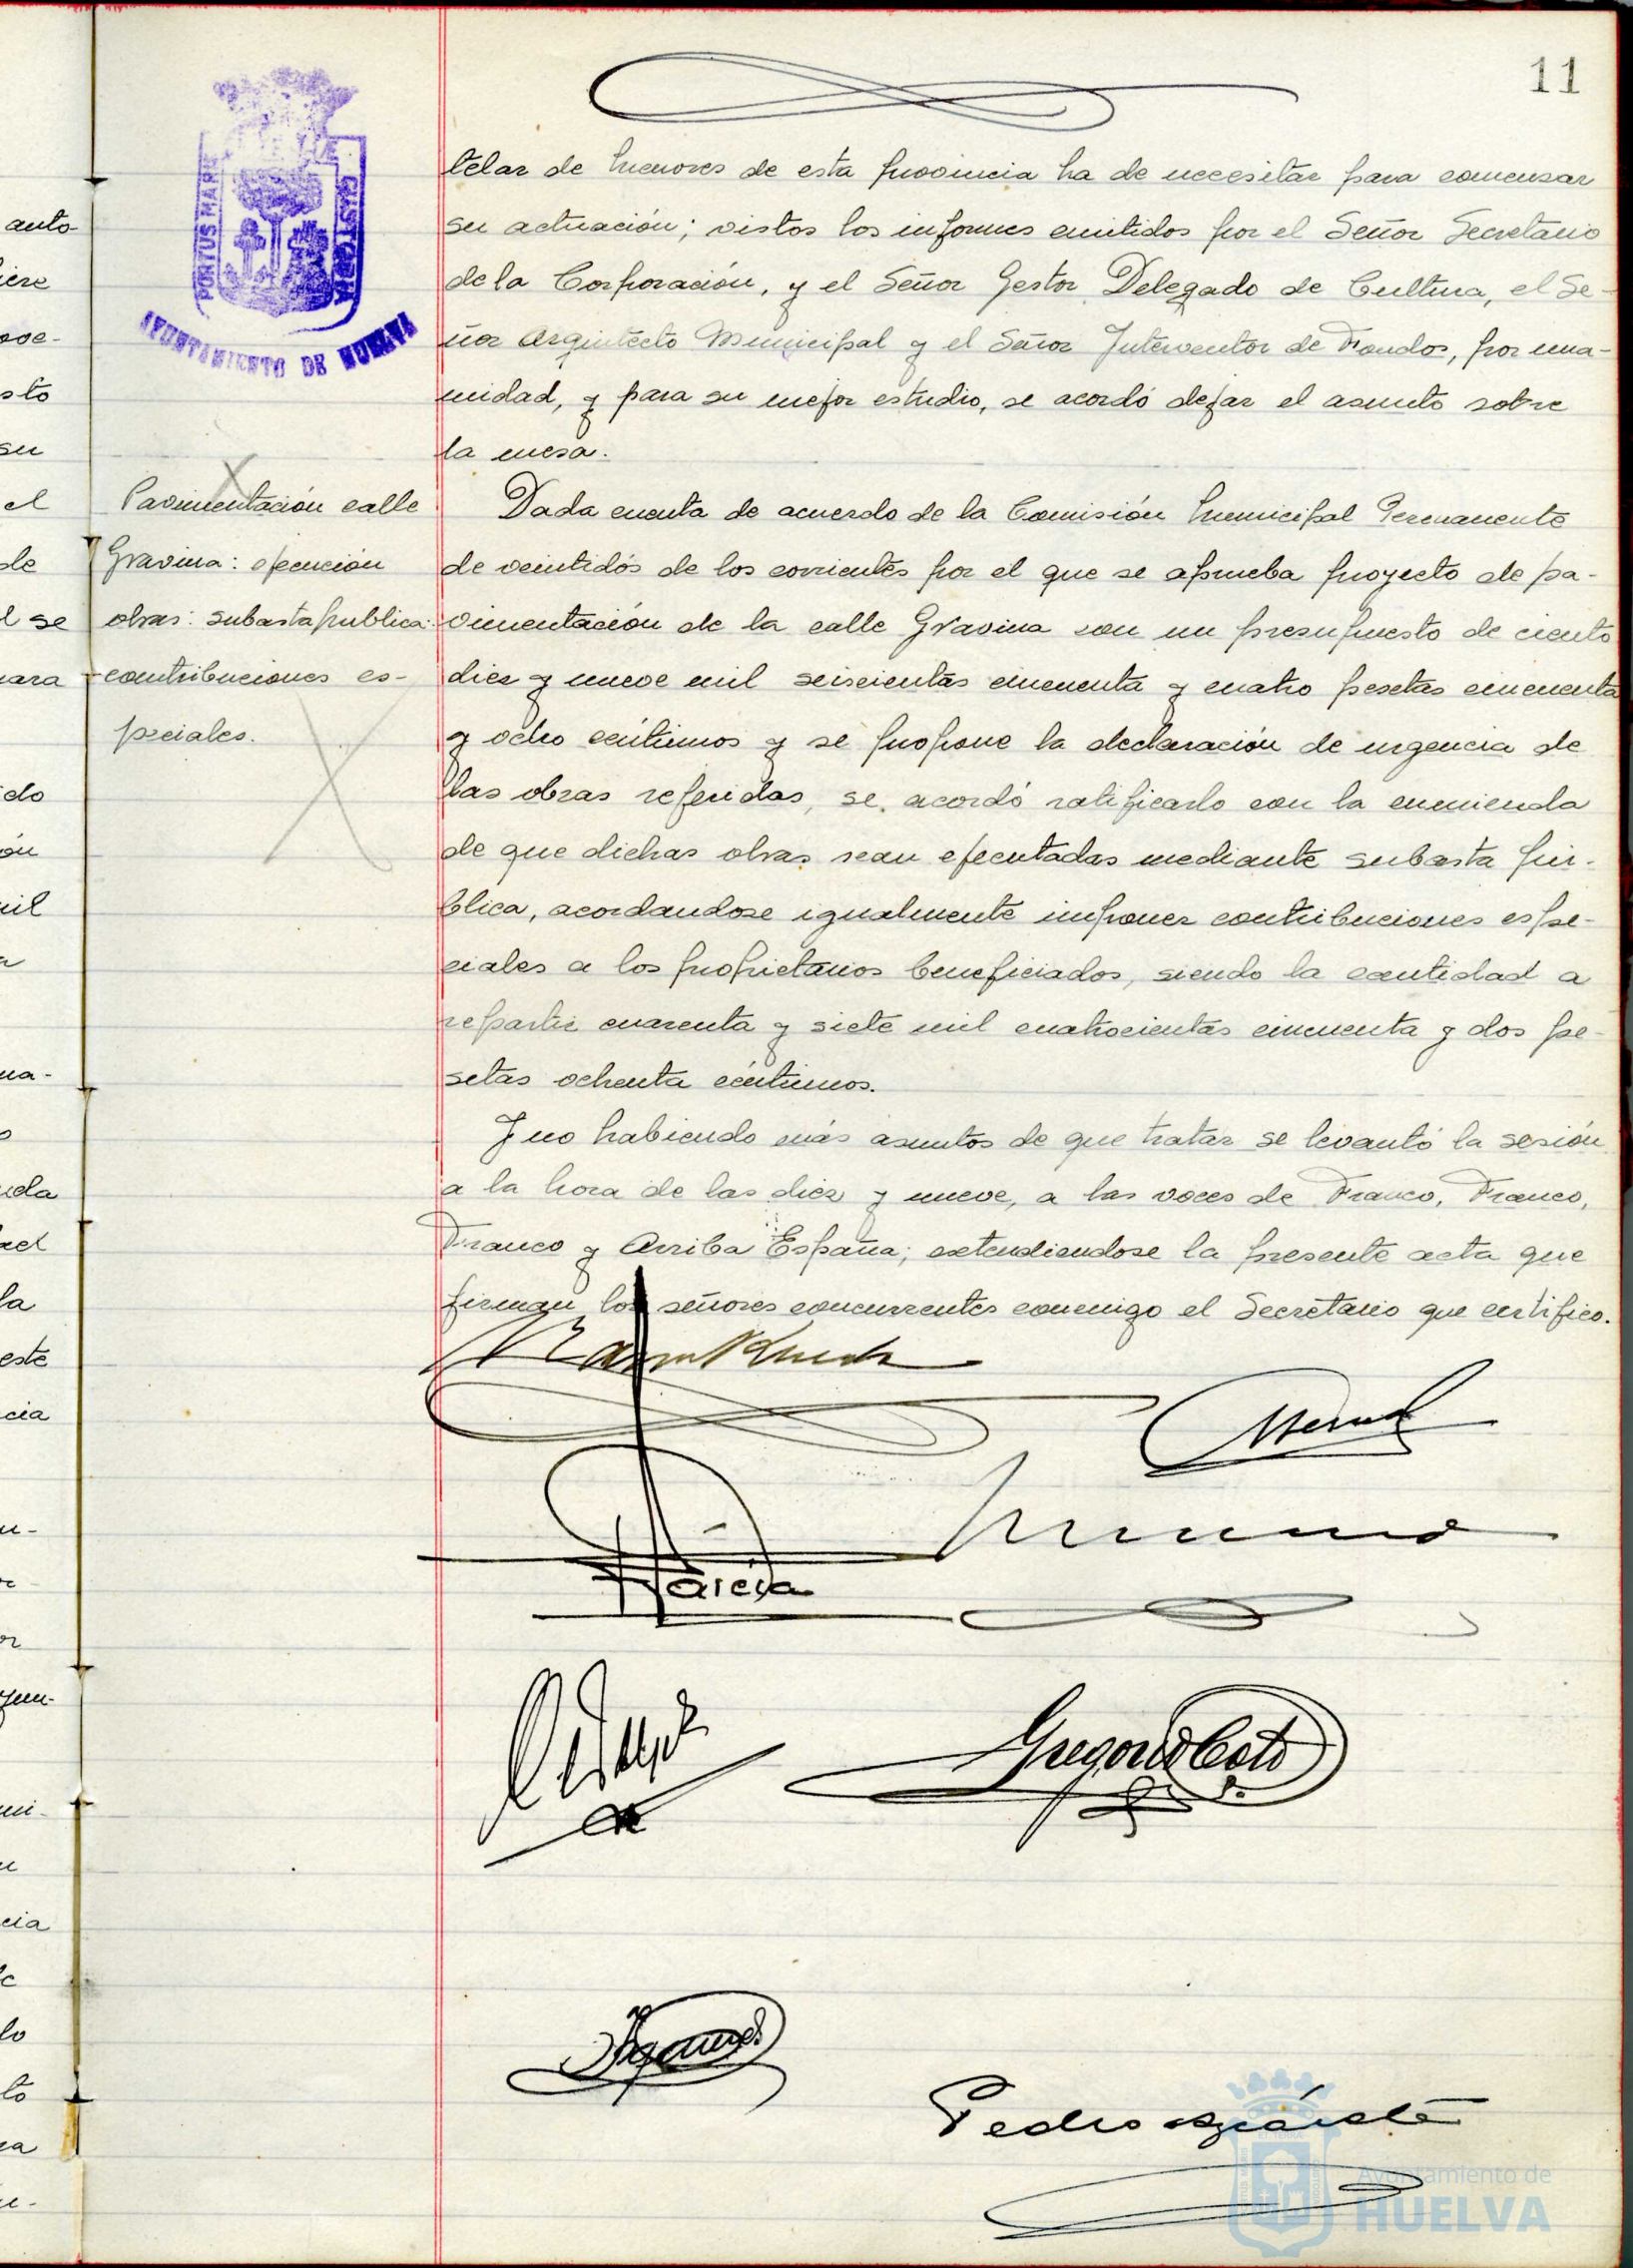 11
PORTUS MARIS
CUSTODIA
AYUNTAMIENTO DE HUELVA
telar de menores de esta provincia ha de necesitar para comenzar
su actuación; vistos los informes emitidos por el Señor Secretario
de la Corporación, y el Señor Gestor Delegado de Cultura, el Se-
ñor Arquitecto Municipal y el Señor Interventor de Fondos, por una-
nidad, y para su mejor estudio, se acordó dejar el asunto sobre
la mesa.
Pavimentación calle
Gravina: ejecución
obras: subasta publica:
contribuciones es-
peciales.
Dada cuenta de acuerdo de la Comisión Municipal Permanente
de veintidós de los corrientes por el que se aprueba proyecto de pa-
vimentación de la calle Gravina con un presupuesto de ciento
diez y nueve mil seiscientas cincuenta y cuatro pesetas cincuenta
y ocho céntimos y se propone la declaración de urgencia de
las obras referidas, se acordó ratificarlo con la enmienda
de que dichas obras sean ejecutadas mediante subasta pú-
blica, acordandose igualmente imponer contribuciones espe-
ciales a los propietarios beneficiados, siendo la cantidad a
repartir cuarenta y siete mil cuatrocientas cincuenta y dos pe-
setas ochenta céntimos.
Y no habiendo más asuntos de que tratar se levantó la sesión
a la hora de las diez y nueve, a las voces de Franco, Franco,
Franco y Arriba España; extendiendose la presente acta que
firman los señores concurrentes conmigo el Secretario que certifico.
García
Gregorio Coto
Pedro
Ayuntamiento de
HUELVA
auto-
iere
ove-
sto
su
el
de
l se
ara
do
ón
mil
a
na-
o
nda
ad
la
este
cia
n-
or
yun-
mi-
cia
lo
to
ra